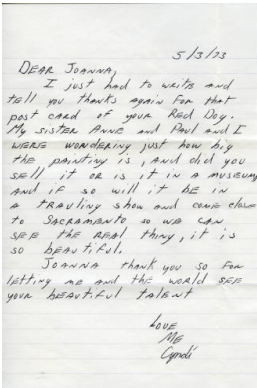 5/3/73
DEAR JOANNA,
I just had to write and
tell you thanks again for that
post card of your Red Dog.
My sister Anne and Paul and I
were wondering just how big
the painting is, and did you
sell it or is it in a museum,
and if so will it be in
a travling show and come close
to Sacramento so we can
see the real thing, it is
so beautiful.
Joanna thank you so for
letting me and the world see
your beautiful talent
LOVE
ME
Cyndi